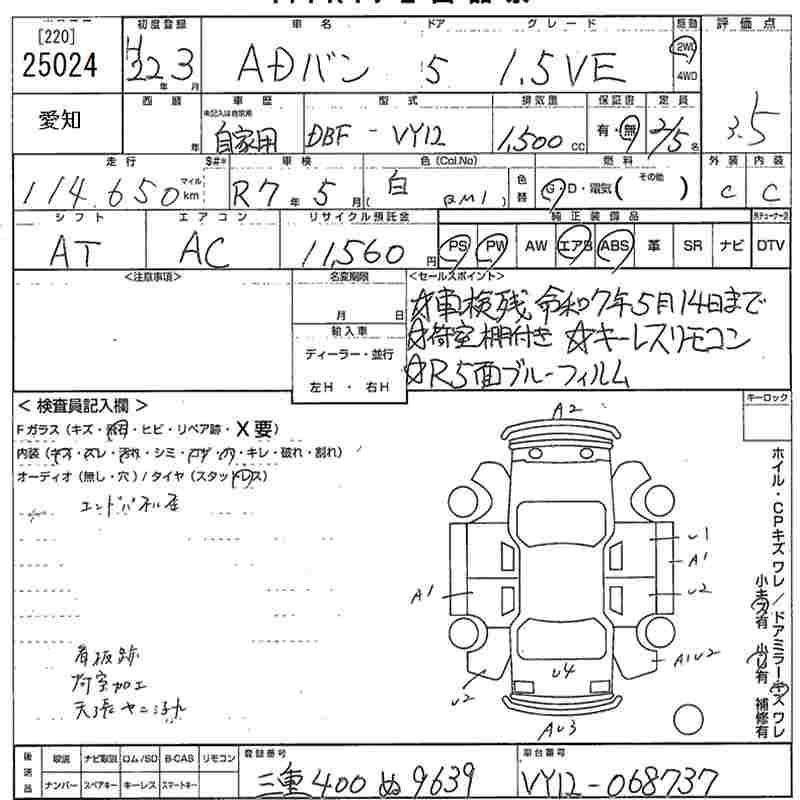 [220]
25024
愛知
初度登録
H22 3
年 月
車名
ADバン
ドア
5
グレード
1.5VE
駆動
2WD
4WD
評価点
3.5
西暦
年
車歴
未記入は自家用
自家用
型式
DBF - VY12
排気量
1,500 CC
保証書
有・無
定員
2/5名
走行
114,650
マイル
km
S#*
車検
R7年 5月
色(Col.No)
白
(QM1)
色替
燃料
G・D・電気( その他 )
外装
C
内装
C
シフト
AT
エアコン
AC
リサイクル預託金
11,560円
純正装備品
PS PW AW エアB ABS 革 SR ナビ DTV
<注意事項>
名変期限
月 日
輸入車
ディーラー・並行
左H ・ 右H
<セールスポイント>
☆車検残 令和7年5月14日まで
☆荷室棚付き ☆キーレスリモコン
☆R5面ブルーフィルム
< 検査員記入欄 >
Fガラス(キズ・飛石・ヒビ・リペア跡・X要)
・シミ・ ・キレ・破れ・割れ)
オーディオ(無し・穴)/タイヤ(スタッドレス)
エンドパネル
看板跡
荷室加工
天張ヤニ汚れ
キーロック
A2
U1
A1
A1
U2
A1U2
U4
U2
AU3
ホイル・CPキズ ワレ/ドアミラーキズ ワレ
小キズ有 小凹有 補修有
後送品
取説 ナビ取説 ロム/SD B-CAS リモコン
ナンバー スペアキー キーレス スマートキー
登録番号
三重 400 ぬ 9639
車台番号
VY12-068737